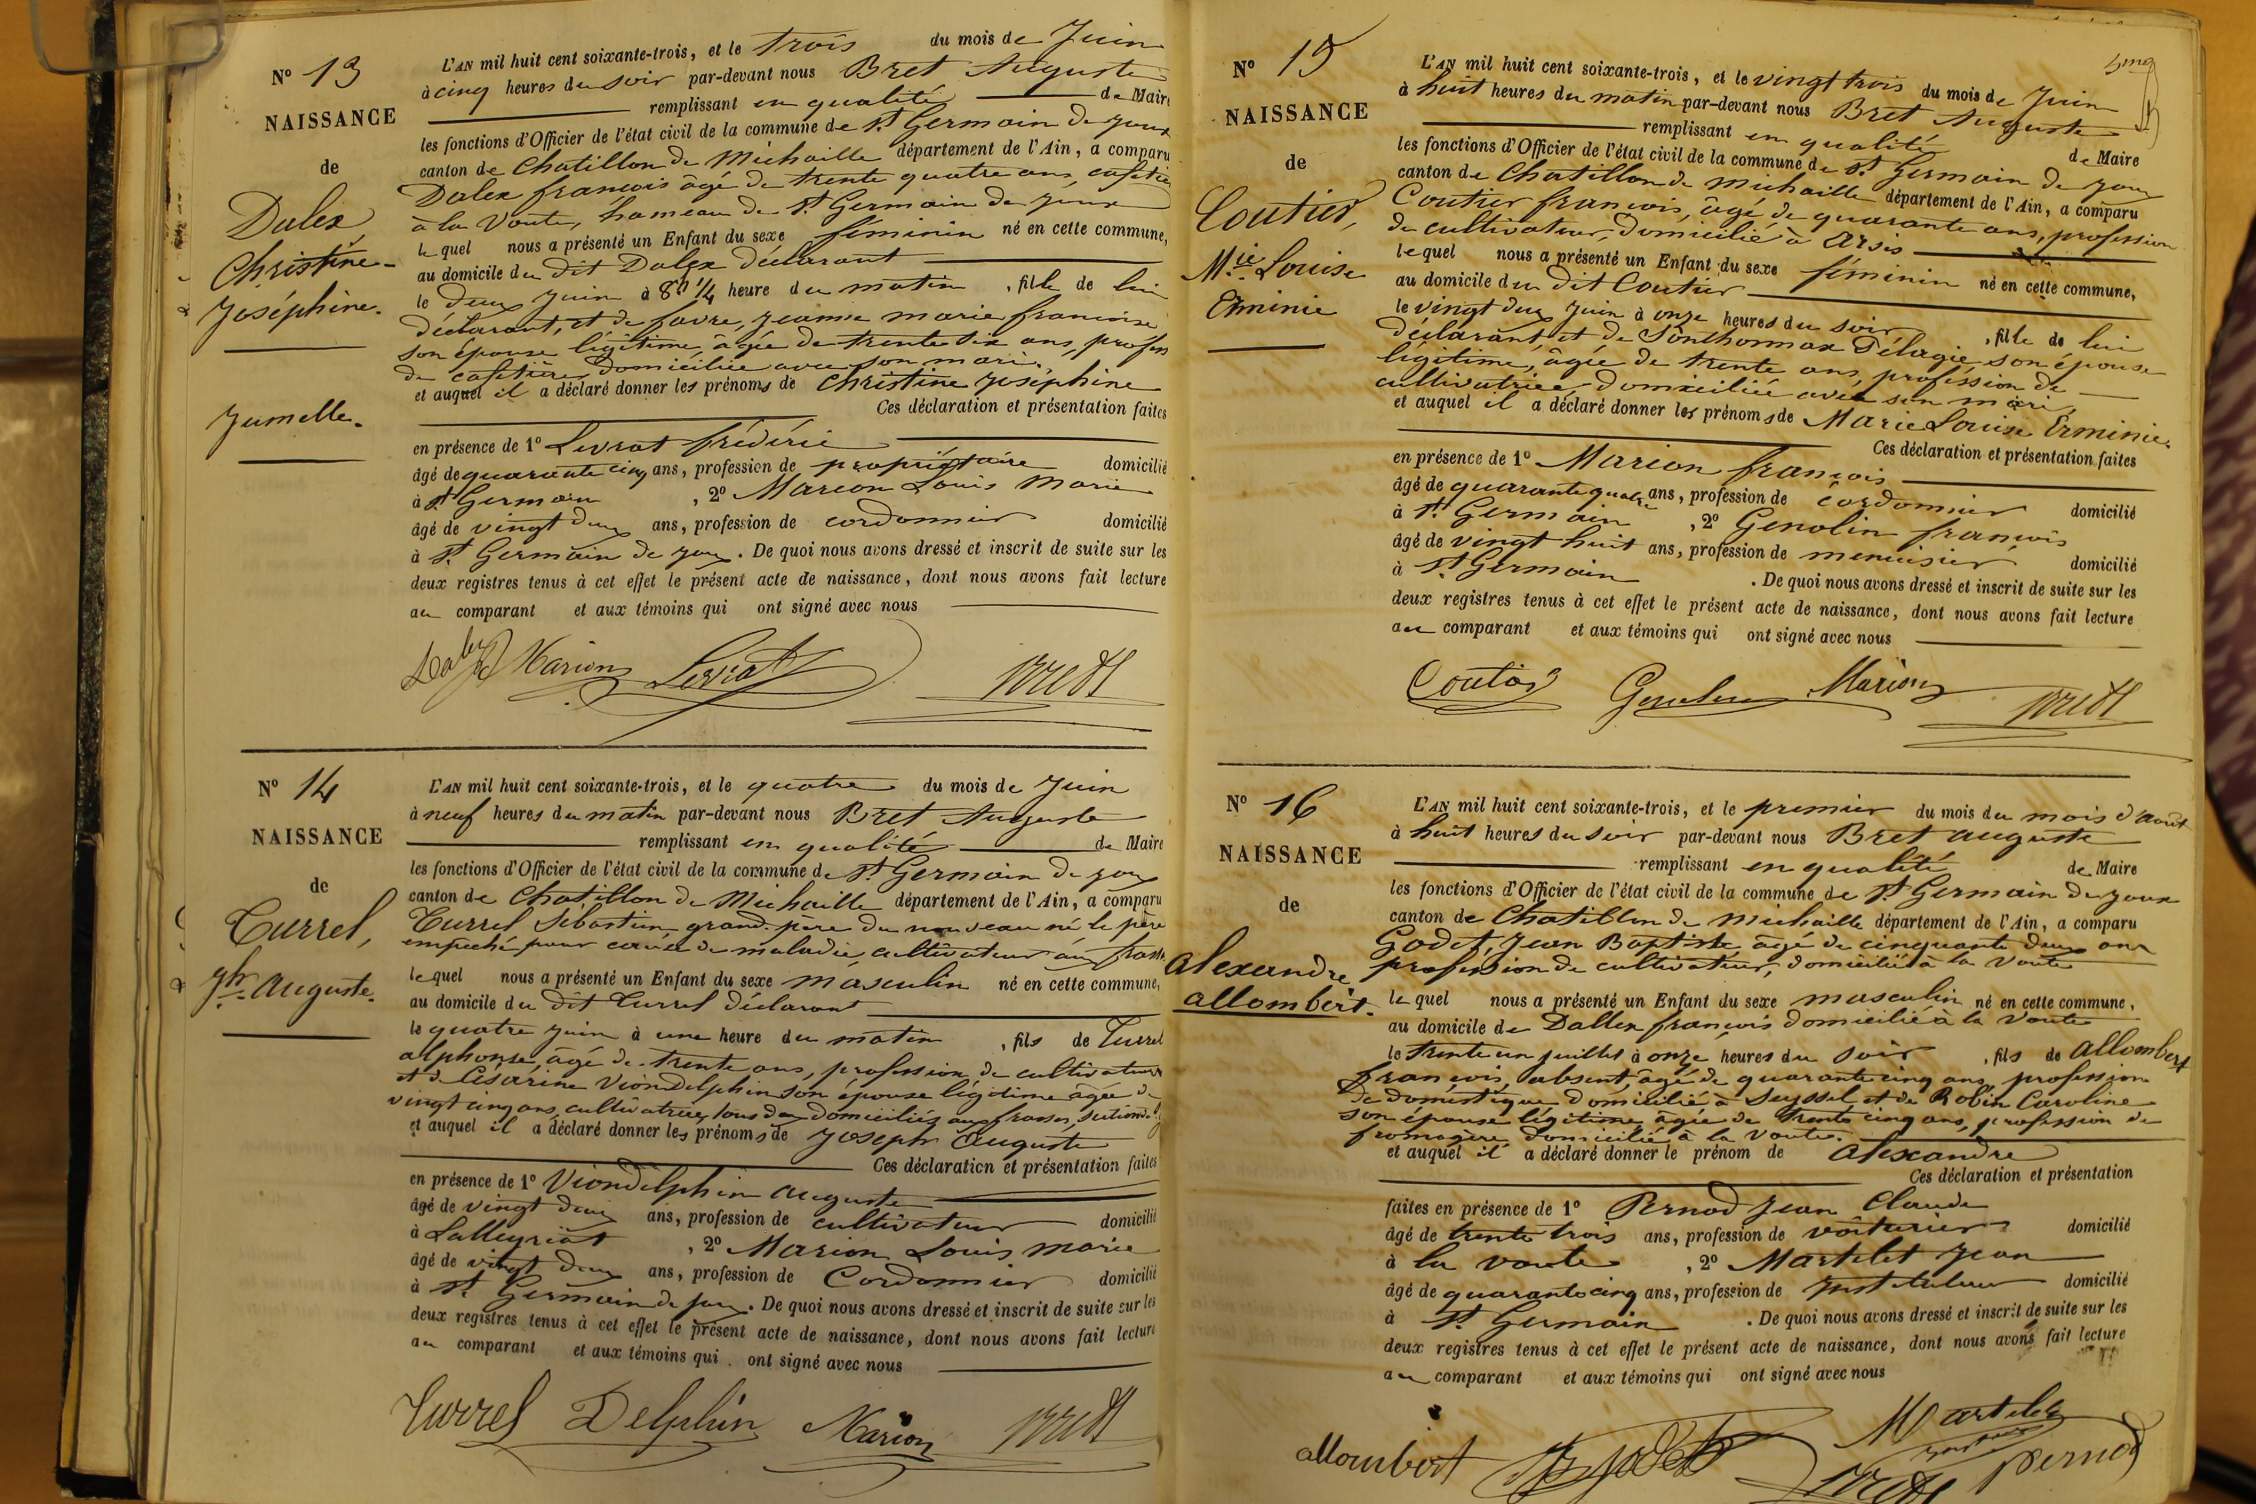 N° 13
NAISSANCE
de
Dalex
Christine
Joséphine.
Jumelle.
L'AN mil huit cent soixante-trois, et le trois du mois de Juin
à cinq heures du soir par-devant nous Bret Auguste
remplissant en qualité de Maire
les fonctions d'Officier de l'état civil de la commune de St Germain de Joux
canton de Chatillon de Michaille département de l'Ain, a comparu
Dalex françois âgé de trente quatre ans, cafetier
à la Voute, hameau de St Germain de Joux
le quel nous a présenté un Enfant du sexe féminin né en cette commune,
au domicile du dit Dalex déclarant
le deux Juin à 8h 1/4 heure du matin, fille de lui
déclarant, et de favre, jeanne marie françoise
son épouse légitime, âgée de trente six ans, profess
de cafetière domiciliée avec son mari,
et auquel il a déclaré donner les prénoms de Christine Joséphine
Ces déclaration et présentation faites
en présence de 1° Levrat frédéric
âgé de quarante cinq ans, profession de propriétaire domicilié
à St Germain, 2° Marion Louis Marie
âgé de vingt deux ans, profession de cordonnier domicilié
à St Germain de Joux. De quoi nous avons dressé et inscrit de suite sur les
deux registres tenus à cet effet le présent acte de naissance, dont nous avons fait lecture
au comparant et aux témoins qui ont signé avec nous
Dalex Marion Levrat Bret
N° 14
NAISSANCE
de
Turrel,
Jh Auguste.
L'AN mil huit cent soixante-trois, et le quatre du mois de Juin
à neuf heures du matin par-devant nous Bret Auguste
remplissant en qualité de Maire
les fonctions d'Officier de l'état civil de la commune de St Germain de Joux
canton de Chatillon de Michaille département de l'Ain, a comparu
Turrel Sébastien grand-père du nouveau né le père
empeché pour cause de maladie, cultivateur aux frasses
le quel nous a présenté un Enfant du sexe masculin né en cette commune,
au domicile du dit Turrel déclarant
le quatre Juin à une heure du matin, fils de Turrel
alphonse, âgé de trente ans, profession de cultivateur
et de Césarine Viondelphin son épouse légitime âgée de
vingt cinq ans, cultivatrice, tous deux domiciliés aux frasses, section de
et auquel il a déclaré donner les prénoms de Joseph Auguste
Ces déclaration et présentation faites
en présence de 1° Viondelphin auguste
âgé de vingt deux ans, profession de cultivateur domicilié
à Lalleyriat, 2° Marion Louis marie
âgé de vingt deux ans, profession de Cordonnier domicilié
à St Germain de Joux. De quoi nous avons dressé et inscrit de suite sur les
deux registres tenus à cet effet le présent acte de naissance, dont nous avons fait lecture
au comparant et aux témoins qui ont signé avec nous
Turrel Delphin Marion Bret
N° 15
NAISSANCE
de
Coutier,
Mie Louise
Erminie
L'AN mil huit cent soixante-trois, et le vingt trois du mois de Juin
à huit heures du matin par-devant nous Bret Auguste
remplissant en qualité de Maire
les fonctions d'Officier de l'état civil de la commune de St Germain de Joux
canton de Chatillon de Michaille département de l'Ain, a comparu
Coutier françois, âgé de quarante ans, profession
de cultivateur, domicilié à Arsis
le quel nous a présenté un Enfant du sexe féminin né en cette commune,
au domicile du dit Coutier
le vingt deux Juin à onze heures du soir, fille de lui
déclarant, et de Sonthonnax Pélagie, son épouse
légitime, âgée de trente ans, profession de
cultivatrice, domiciliée avec son mari,
et auquel il a déclaré donner les prénoms de Marie Louise Erminie.
Ces déclaration et présentation faites
en présence de 1° Marion françois
âgé de quarante quatre ans, profession de cordonnier domicilié
à St Germain, 2° Genolin françois
âgé de vingt huit ans, profession de menuisier domicilié
à St Germain. De quoi nous avons dressé et inscrit de suite sur les
deux registres tenus à cet effet le présent acte de naissance, dont nous avons fait lecture
au comparant et aux témoins qui ont signé avec nous
Coutier Genolin Marion Bret
N° 16
NAISSANCE
de
Alexandre
allombert.
L'AN mil huit cent soixante-trois, et le premier du mois du mois d'août
à huit heures du soir par-devant nous Bret auguste
remplissant en qualité de Maire
les fonctions d'Officier de l'état civil de la commune de St Germain de Joux
canton de Chatillon de Michaille département de l'Ain, a comparu
Godet, Jean Baptiste âgé de cinquante deux ans
profession de cultivateur, domicilié à la Voute
le quel nous a présenté un Enfant du sexe masculin né en cette commune,
au domicile de Dallex françois domicilié à la Voute
le trente un juillet à onze heures du soir, fils de allombert
françois, absent, âgé de quarante cinq ans, profession
de domestique domicilié à Seyssel et de Robin Caroline
son épouse légitime âgée de trente cinq ans, profession de
fromagère domicilié à la Voute.
et auquel il a déclaré donner le prénom de alexandre
Ces déclaration et présentation
faites en présence de 1° Pernod Jean Claude
âgé de trente trois ans, profession de voiturier domicilié
à la voute, 2° Martelet Jean
âgé de quarante cinq ans, profession de Instituteur domicilié
à St Germain. De quoi nous avons dressé et inscrit de suite sur les
deux registres tenus à cet effet le présent acte de naissance, dont nous avons fait lecture
au comparant et aux témoins qui ont signé avec nous
allombert Godet Martelet Bret Pernod